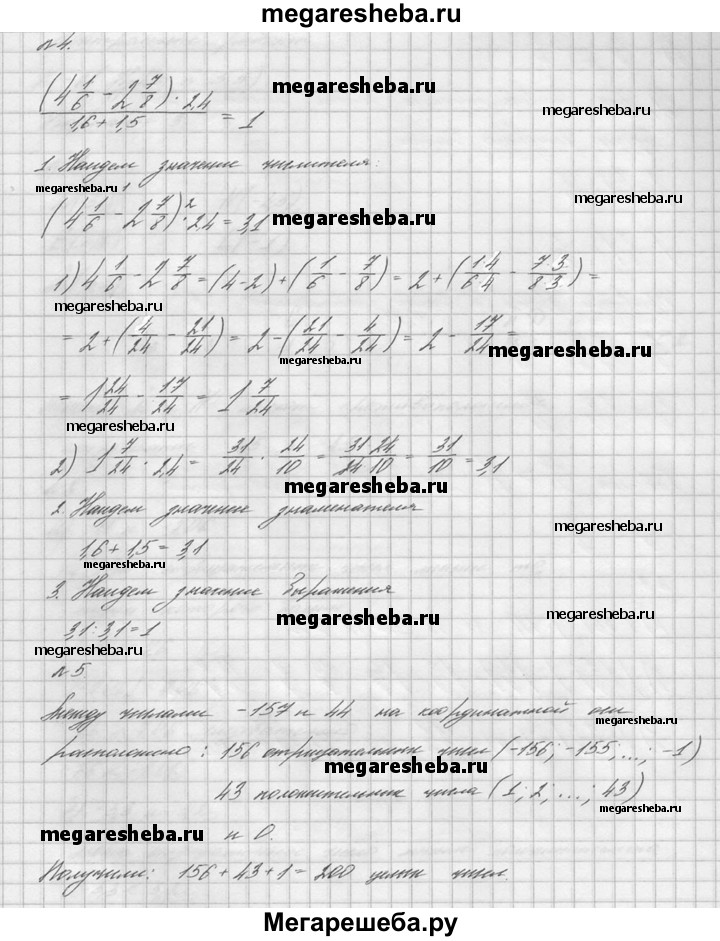 megaresheba.ru
№4.
(4 1/6 - 2 7/8) · 2,4 / 1,6 + 1,5 = 1
megaresheba.ru
megaresheba.ru
1. Найдем значение числителя:
megaresheba.ru
megaresheba.ru
(4 1/6 - 2 7/8)² · 2,4 = 3,1
megaresheba.ru
1) 4 1/6 - 2 7/8 = (4-2) + (1/6 - 7/8) = 2 + (1·4/6·4 - 7·3/8·3) =
megaresheba.ru
= 2 + (4/24 - 21/24) = 2 - (21/24 - 4/24) = 2 - 17/24 =
megaresheba.ru
megaresheba.ru
= 1 24/24 - 17/24 = 1 7/24
megaresheba.ru
2) 1 7/24 · 2,4 = 31/24 · 24/10 = 31·24/24·10 = 31/10 = 3,1
megaresheba.ru
2. Найдем значение знаменателя
megaresheba.ru
1,6 + 1,5 = 3,1
megaresheba.ru
3. Найдем значение выражения
megaresheba.ru
megaresheba.ru
3,1 : 3,1 = 1
megaresheba.ru
№5.
Между числами -157 и 44 на координатной оси
megaresheba.ru
расположено: 156 отрицательных чисел (-156; -155; ...; -1)
megaresheba.ru
43 положительных числа (1; 2; ...; 43)
megaresheba.ru
megaresheba.ru
и 0.
Получили: 156 + 43 + 1 = 200 целых чисел.
Мегарешеба.ру